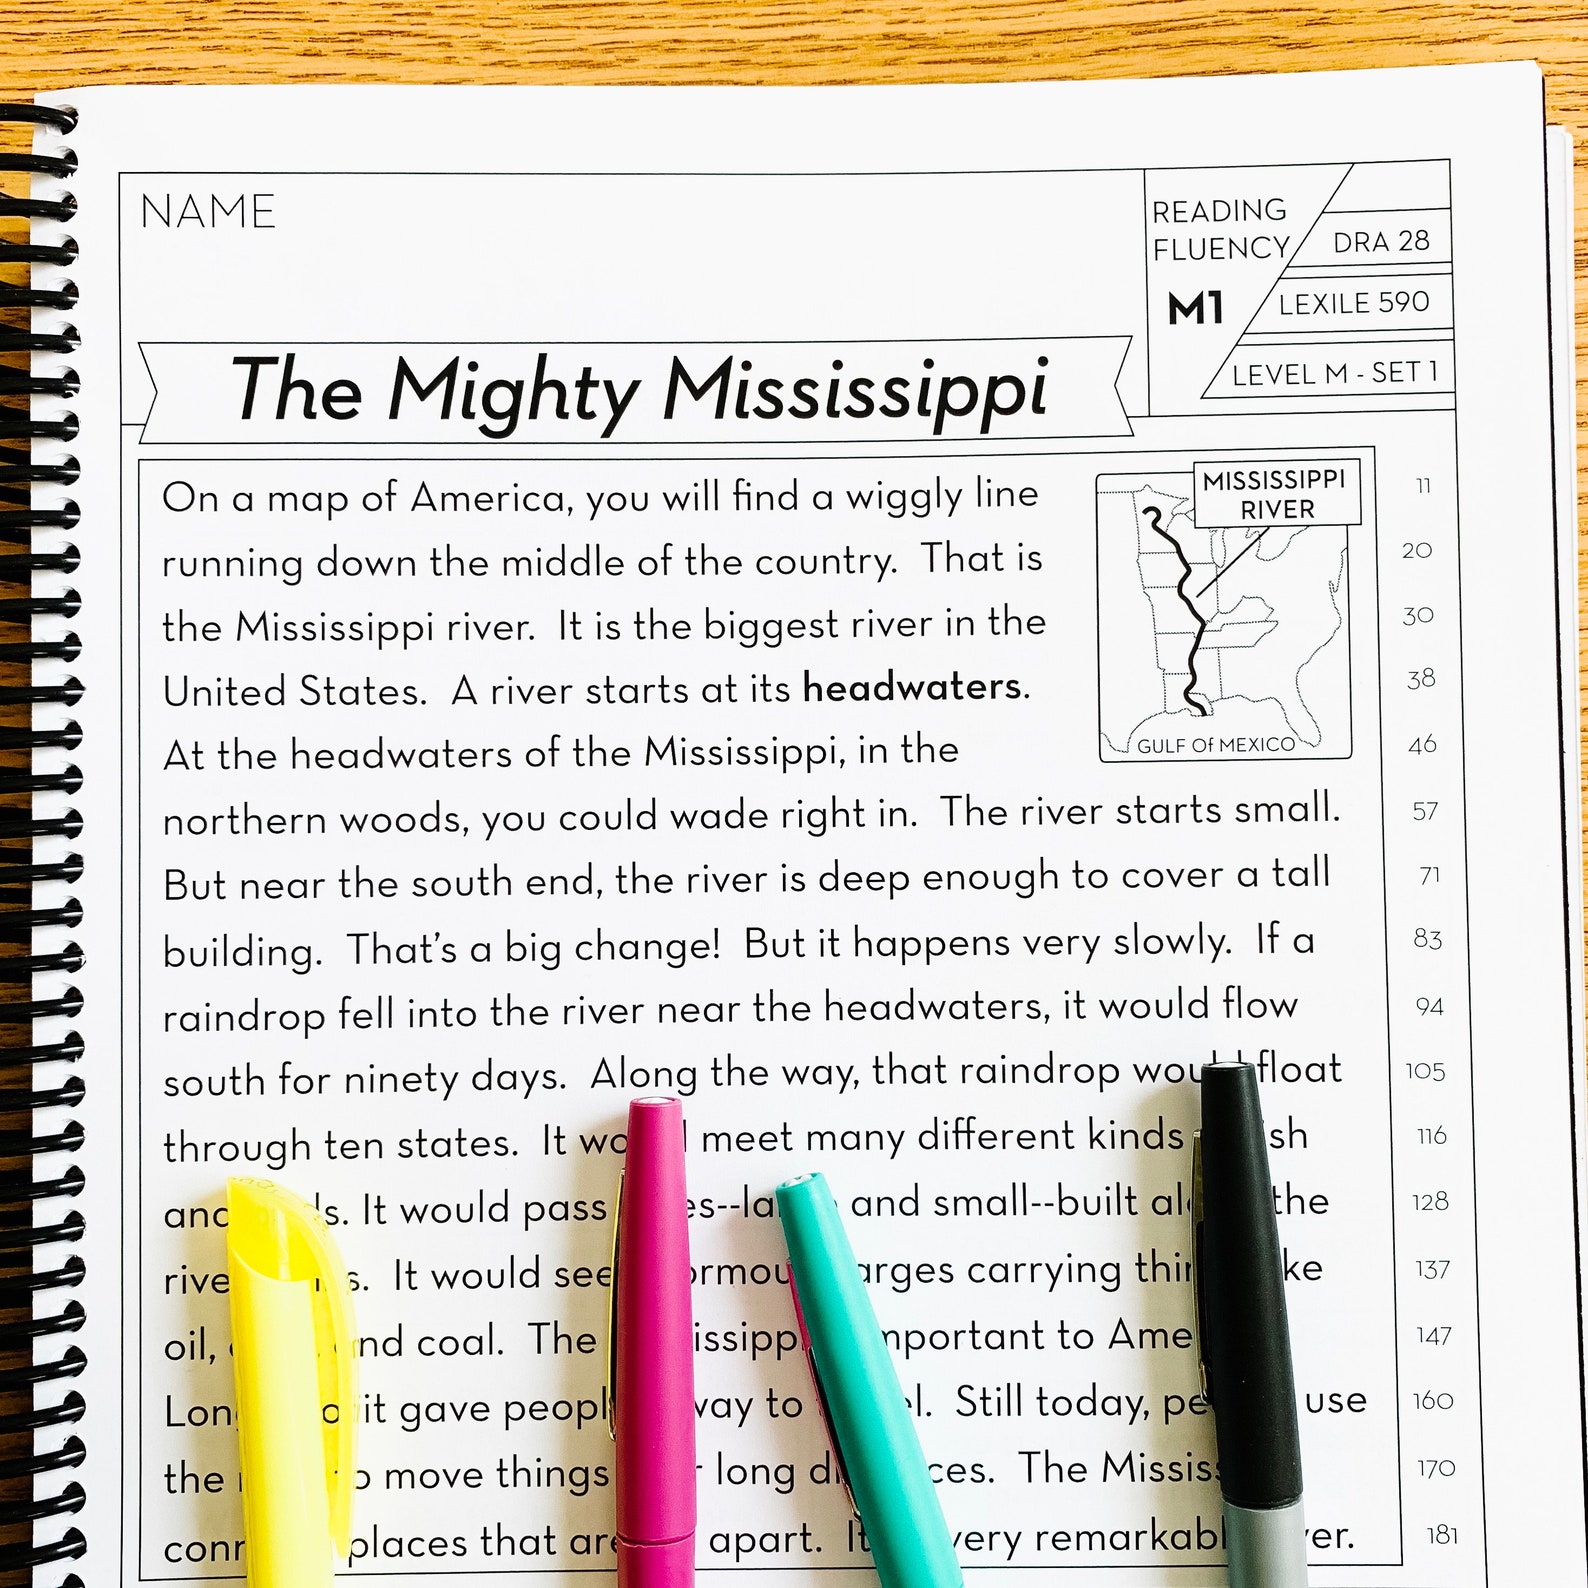 NAME
READING
FLUENCY
M1
DRA 28
LEXILE 590
LEVEL M - SET 1
The Mighty Mississippi
MISSISSIPPI
RIVER
GULF Of MEXICO
On a map of America, you will find a wiggly line 11
running down the middle of the country. That is 20
the Mississippi river. It is the biggest river in the 30
United States. A river starts at its headwaters. 38
At the headwaters of the Mississippi, in the 46
northern woods, you could wade right in. The river starts small. 57
But near the south end, the river is deep enough to cover a tall 71
building. That's a big change! But it happens very slowly. If a 83
raindrop fell into the river near the headwaters, it would flow 94
south for ninety days. Along the way, that raindrop would float 105
through ten states. It would meet many different kinds 116
It would pass and small--built along the 128
It would see carrying 137
oil, and coal. The Mississippi important to 147
it gave people way to Still today, people use 160
the move things long The Mississippi 170
places that are apart. very remarkable 181